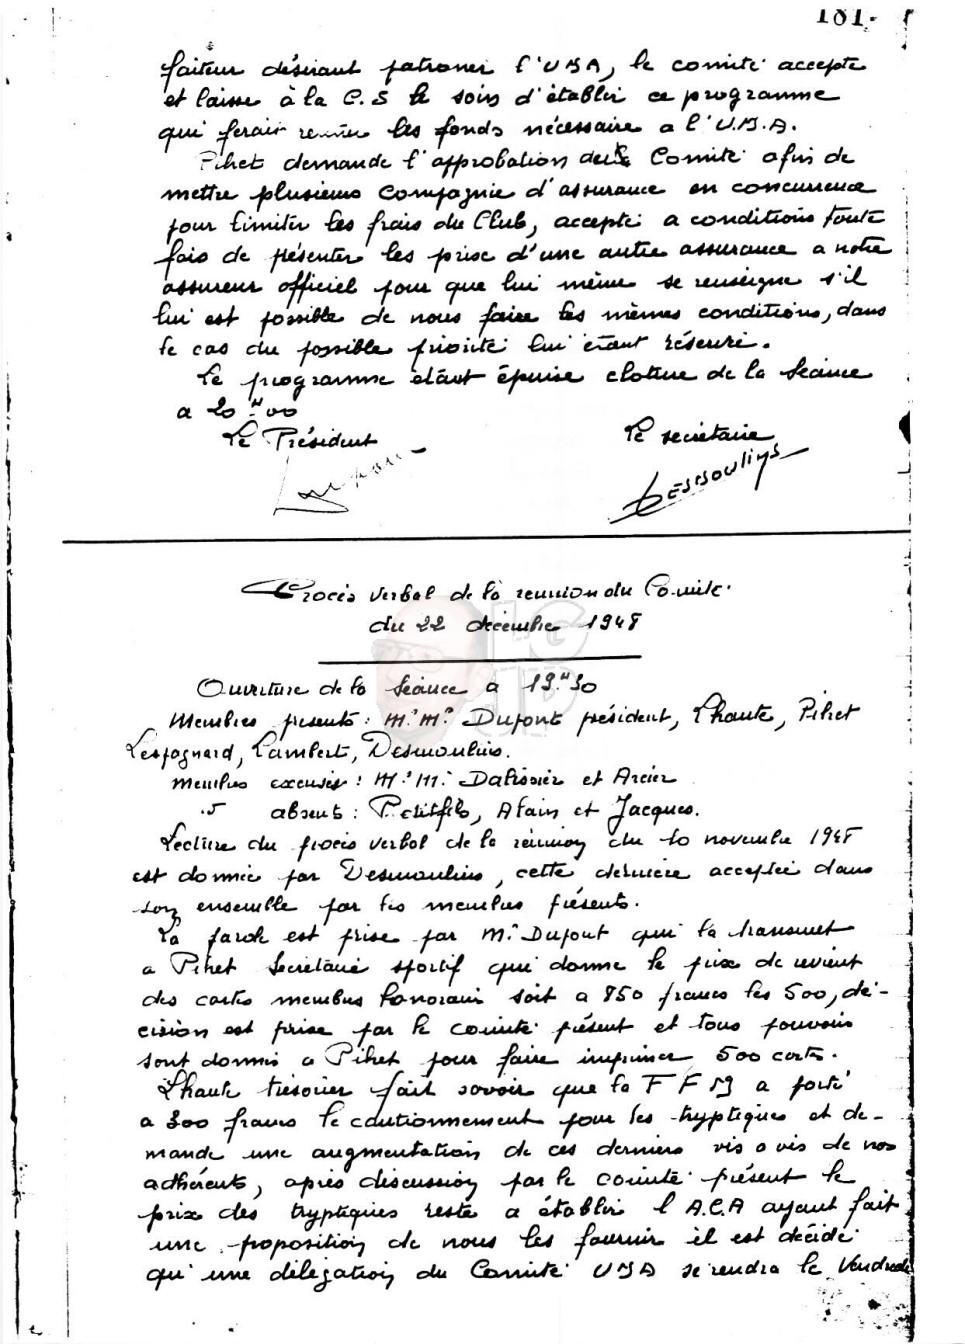 181.
faiteur désirant patroner l'UBA, le comité accepte
et laisse à la C.S le soin d'établir ce programme
qui ferait rentrer les fonds nécessaire a l'U.B.A.
Pihet demande l'approbation du Comité afin de
mettre plusieurs Compagnie d'assurance en concurrence
pour limiter les frais du Club, accepté a conditions toute
fois de présenter les prise d'une autre assurance a notre
assureur officiel pour que lui même se renseigne s'il
lui est possible de nous faire les mêmes conditions, dans
le cas du possible priorité lui étant réservé.
Le programme étant épuisé cloture de la Séance
a 20H00
Le Président
Le secrétaire
Desmoulins
Procès verbal de la reunion du Comité
du 22 décembre 1948
LG JD
Ouverture de la Séance a 19H30
Membres présents : M.M. Dupont président, Lhaute, Pihet
Lespagnard, Lambert, Desmoulins.
Membres excusés : M.M. Dalissier et Arcier
absents : Petitfils, Alain et Jacques.
Lecture du procès verbal de la réunion du 10 novembre 1948
est donnée par Desmoulins, cette dernière acceptée dans
son ensemble par les membres présents.
La parole est prise par M. Dupont qui la transmet
a Pihet Secrétaire sportif qui donne le prix de revient
des cartes membres honoraire soit a 850 francs les 500, dé-
cision est prise par le comité présent et tous pouvoirs
sont donnés a Pihet pour faire imprimer 500 cartes.
Lhaute trésorier fait savoir que la F F B a porté
a 300 francs le cautionnement pour les tryptiques et de-
mande une augmentation de ces derniers vis a vis de nos
adhérents, après discussion par le comité présent le
prix des tryptiques reste a établir l A.C.A ayant fait
une proposition de nous les fournir il est décidé
qu'une délégation du Comité UBA se rendra le Vendredi